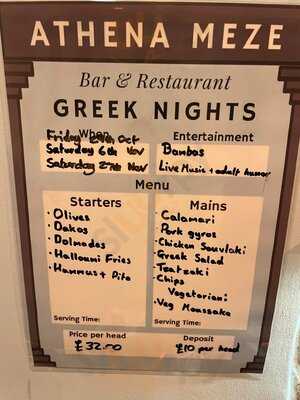 ATHENA MEZE
Bar & Restaurant
GREEK NIGHTS
When
Friday 29th Oct
Saturday 6th Nov
Saturday 27th Nov
Entertainment
Bambos
Live Music + adult humor
Menu
Starters
• Olives
• Dakos
• Dolmades
• Halloumi Fries
• Hummus + Pita
Serving Time:
Mains
• Calamari
• Pork gyros
• Chicken Souvlaki
• Greek Salad
• Tzatzaki
• Chips
Vegetarian:
• Veg Moussaka
Serving Time:
Price per head
£32.00
Deposit
£10 per head